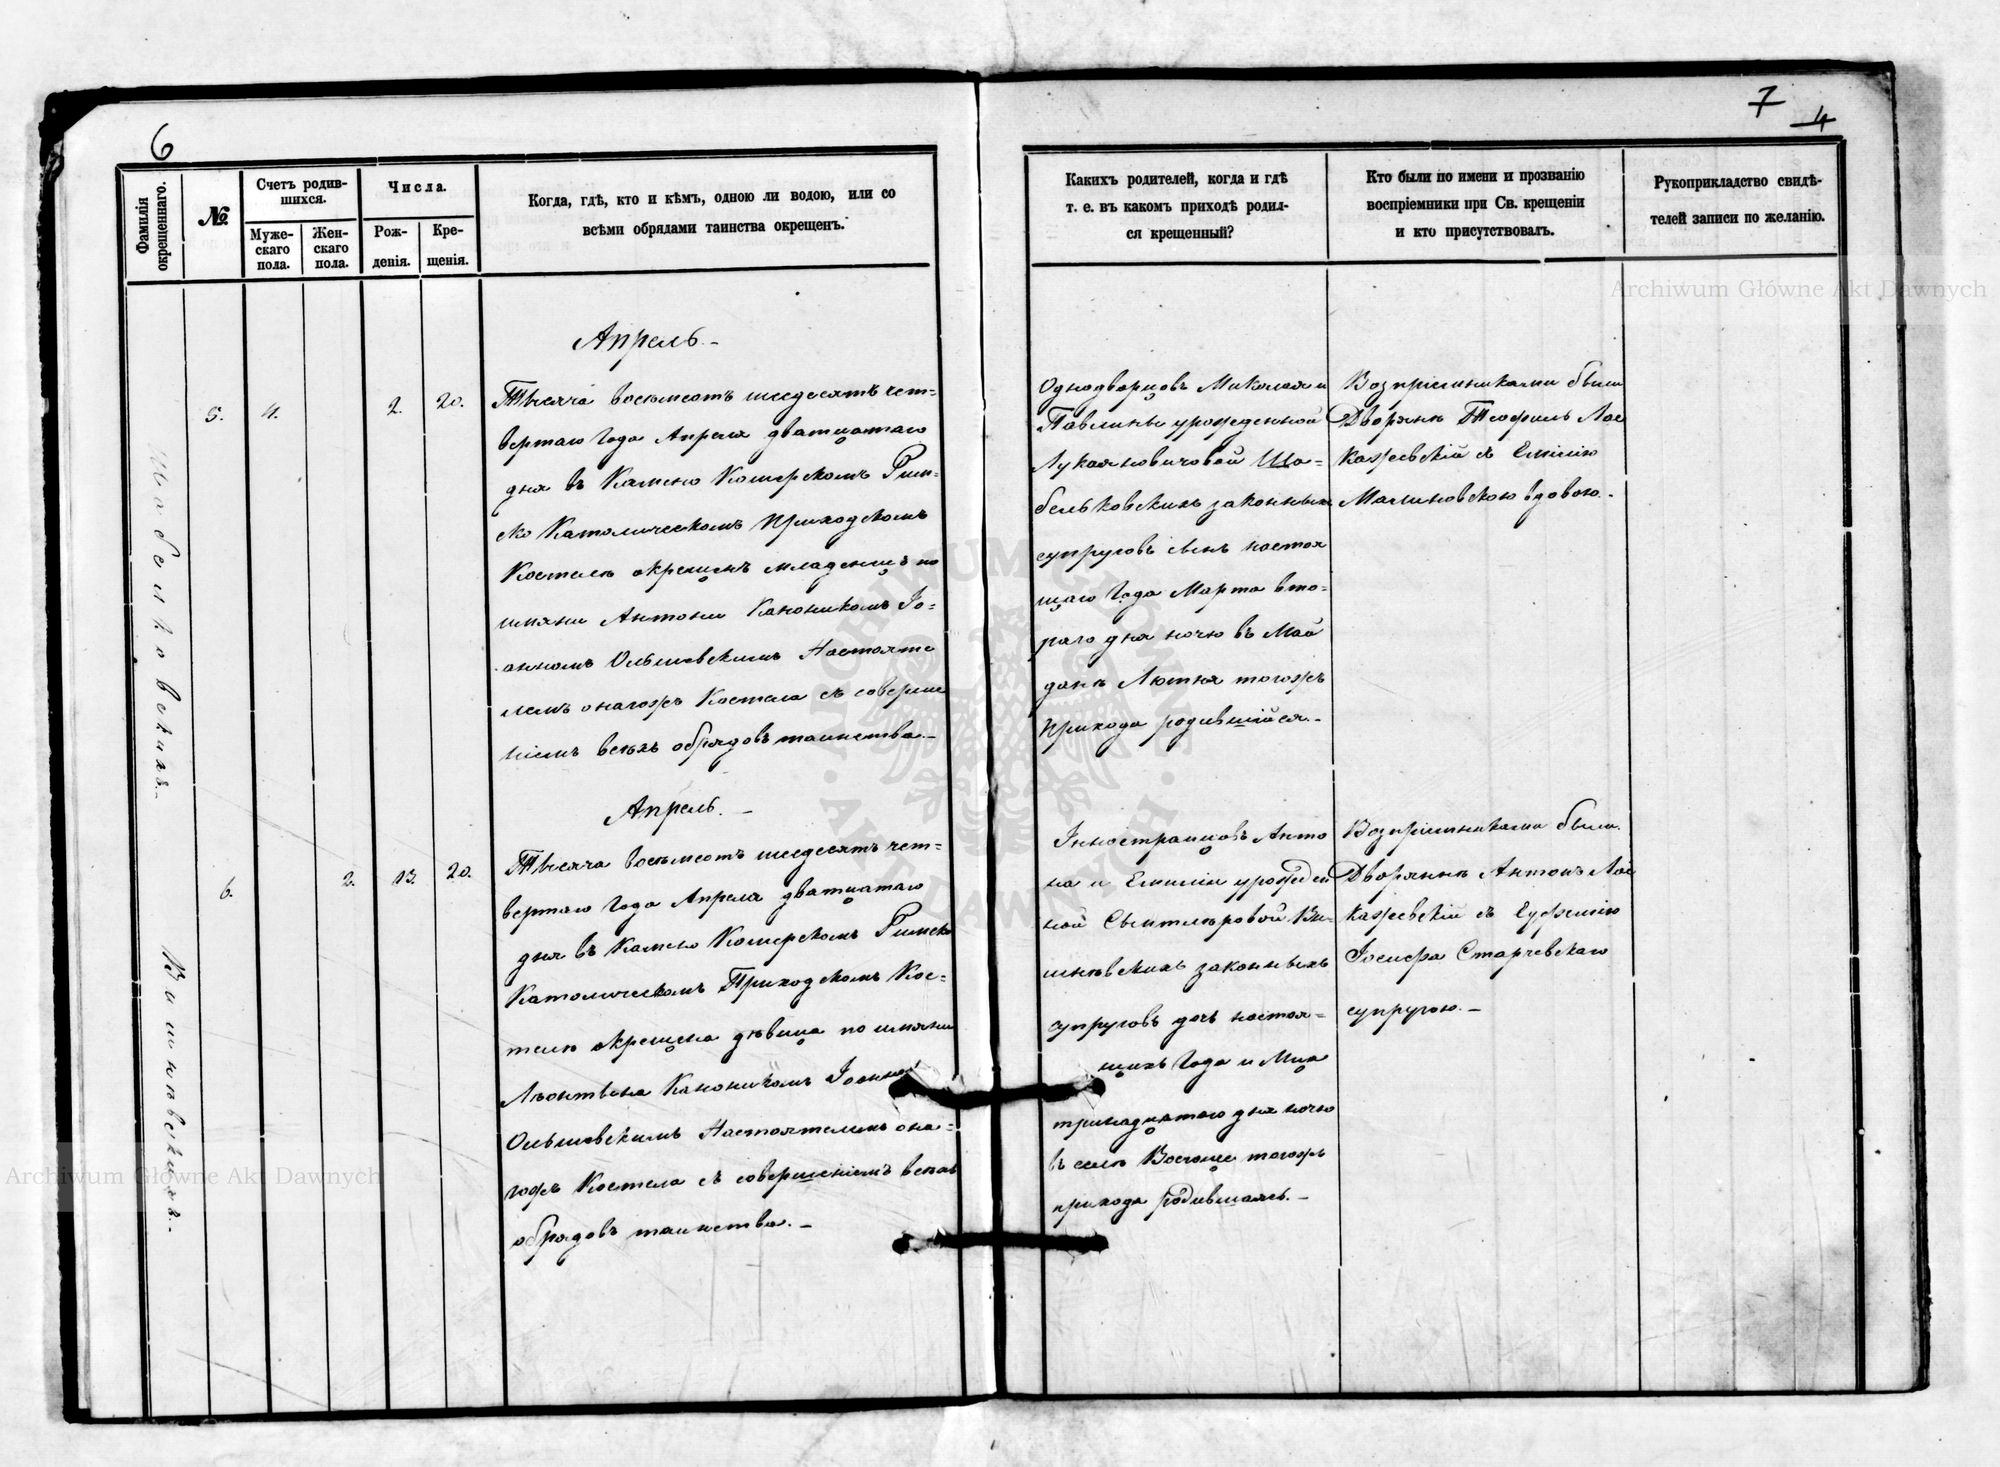 6
Фамилія окрещеннаго.
№
Счетъ родив-
шихся.
Муже-
скаго
пола.
Жен-
скаго
пола.
Числа.
Рож-
денія.
Кре-
щенія.
Когда, гдѣ, кто и кѣмъ, одною ли водою, или со
всѣми обрядами таинства окрещенъ.
Шабельковскихъ.
5.
4.
2.
20.
Апрель.-
Тысяча восемсотъ шедесятъ чет-
вертаго Года Апреля дватцатаго
дня въ Камено Кошерскомъ Рим-
ско Католическомъ Приходскомъ
Костелѣ окрещенъ младенецъ по
имяни Антони Каноникомъ Іо-
анномъ Ольшевскимъ Настояте
лемъ онагожъ Костела съ соверше
ніемъ всѣхъ обрядовъ таинства.-
Вишнѣвскихъ.-
6.
2.
13.
20.
Апрель.-
Тысяча восемсотъ шедесятъ чет-
вертаго Года Апреля дватцатаго
дня въ Камено Кошерскомъ Римско
Католическомъ Приходскомъ Кос-
телѣ окрещена дѣвица по имяни
Каноникомъ Іоанно
Ольшевскимъ Настоятелемъ она-
гожъ Костела съ совершеніемъ всѣхъ
обрядовъ таинства.-
7
4
Какихъ родителей, когда и гдѣ
т. е. въ какомъ приходѣ родил-
ся крещенный?
Кто были по имени и прозванію
воспріемники при Св. крещеніи
и кто присутствовалъ.
Рукоприкладство свидѣ-
телей записи по желанію.
Однодворцовъ Миколая и
Павлины урожденной
Лукаяновичовой Ша-
бельковскихъ законныхъ
супруговъ сынъ настоя
щаго Года Марта вто-
раго дня ночю въ Май
данѣ Лютня тогожъ
прихода родившійся.-
Возпріемниками были
Дворянѣ Теофиль Лос
Кажевскій съ Емілію
Малиновскою вдовою.-
Іностранцовъ Анто
на и Емилии урожден
ной Вы-
шнѣвскихъ законныхъ
супруговъ дочь настоя-
щихъ Года и Мца
тринадцатаго дня ночю
въ селѣ тогожъ
прихода родившаясь.-
Возпріемниками были
Дворянинъ Антонъ Лос
Кажевскій съ Еуфемію
Іосифа Старчевскаго
супругою.-
Archiwum Główne Akt Dawnych
Archiwum Główne Akt Dawnych
ARCHIWUM GŁÓWNE AKT DAWNYCH